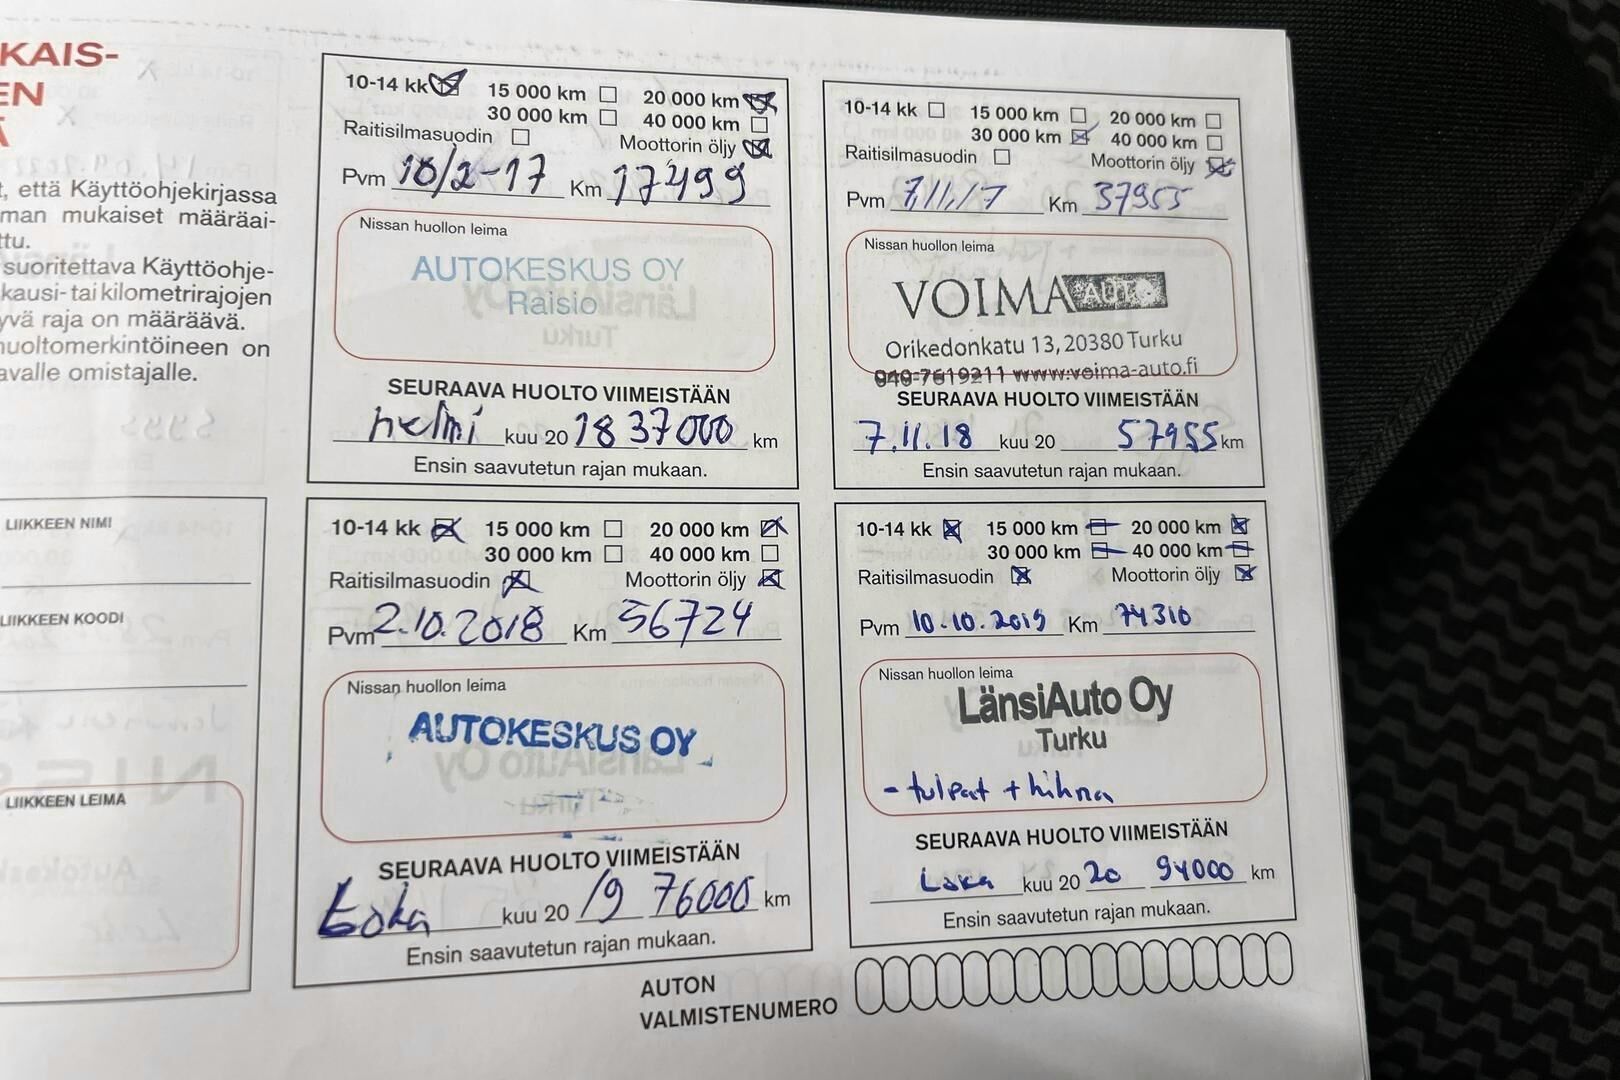 KAIS-
EN
Ä
t, että Käyttöohjekirjassa
man mukaiset määräai-
ttu.
suoritettava Käyttöohje-
kausi- tai kilometrirajojen
yvä raja on määräävä.
huoltomerkintöineen on
avalle omistajalle.
LIIKKEEN NIMI
LIIKKEEN KOODI
LIIKKEEN LEIMA
10-14 kk 15 000 km 20 000 km
30 000 km 40 000 km
Raitisilmasuodin Moottorin öljy
Pvm 10/2-17 Km 17499
Nissan huollon leima
AUTOKESKUS OY
Raisio
SEURAAVA HUOLTO VIIMEISTÄÄN
helmi kuu 20 18 37000 km
Ensin saavutetun rajan mukaan.
10-14 kk 15 000 km 20 000 km
30 000 km 40 000 km
Raitisilmasuodin Moottorin öljy
Pvm 7.11.17 Km 37955
Nissan huollon leima
VOIMA AUTO
Orikedonkatu 13, 20380 Turku
040-7619211 www.voima-auto.fi
SEURAAVA HUOLTO VIIMEISTÄÄN
7.11.18 kuu 20 57955 km
Ensin saavutetun rajan mukaan.
10-14 kk 15 000 km 20 000 km
30 000 km 40 000 km
Raitisilmasuodin Moottorin öljy
Pvm 2.10.2018 Km 56724
Nissan huollon leima
AUTOKESKUS OY
SEURAAVA HUOLTO VIIMEISTÄÄN
Loka kuu 20 19 76000 km
Ensin saavutetun rajan mukaan.
10-14 kk 15 000 km 20 000 km
30 000 km 40 000 km
Raitisilmasuodin Moottorin öljy
Pvm 10.10.2019 Km 74310
Nissan huollon leima
LänsiAuto Oy
Turku
- tulpat + hihna
SEURAAVA HUOLTO VIIMEISTÄÄN
Loka kuu 20 20 94000 km
Ensin saavutetun rajan mukaan.
AUTON
VALMISTENUMERO